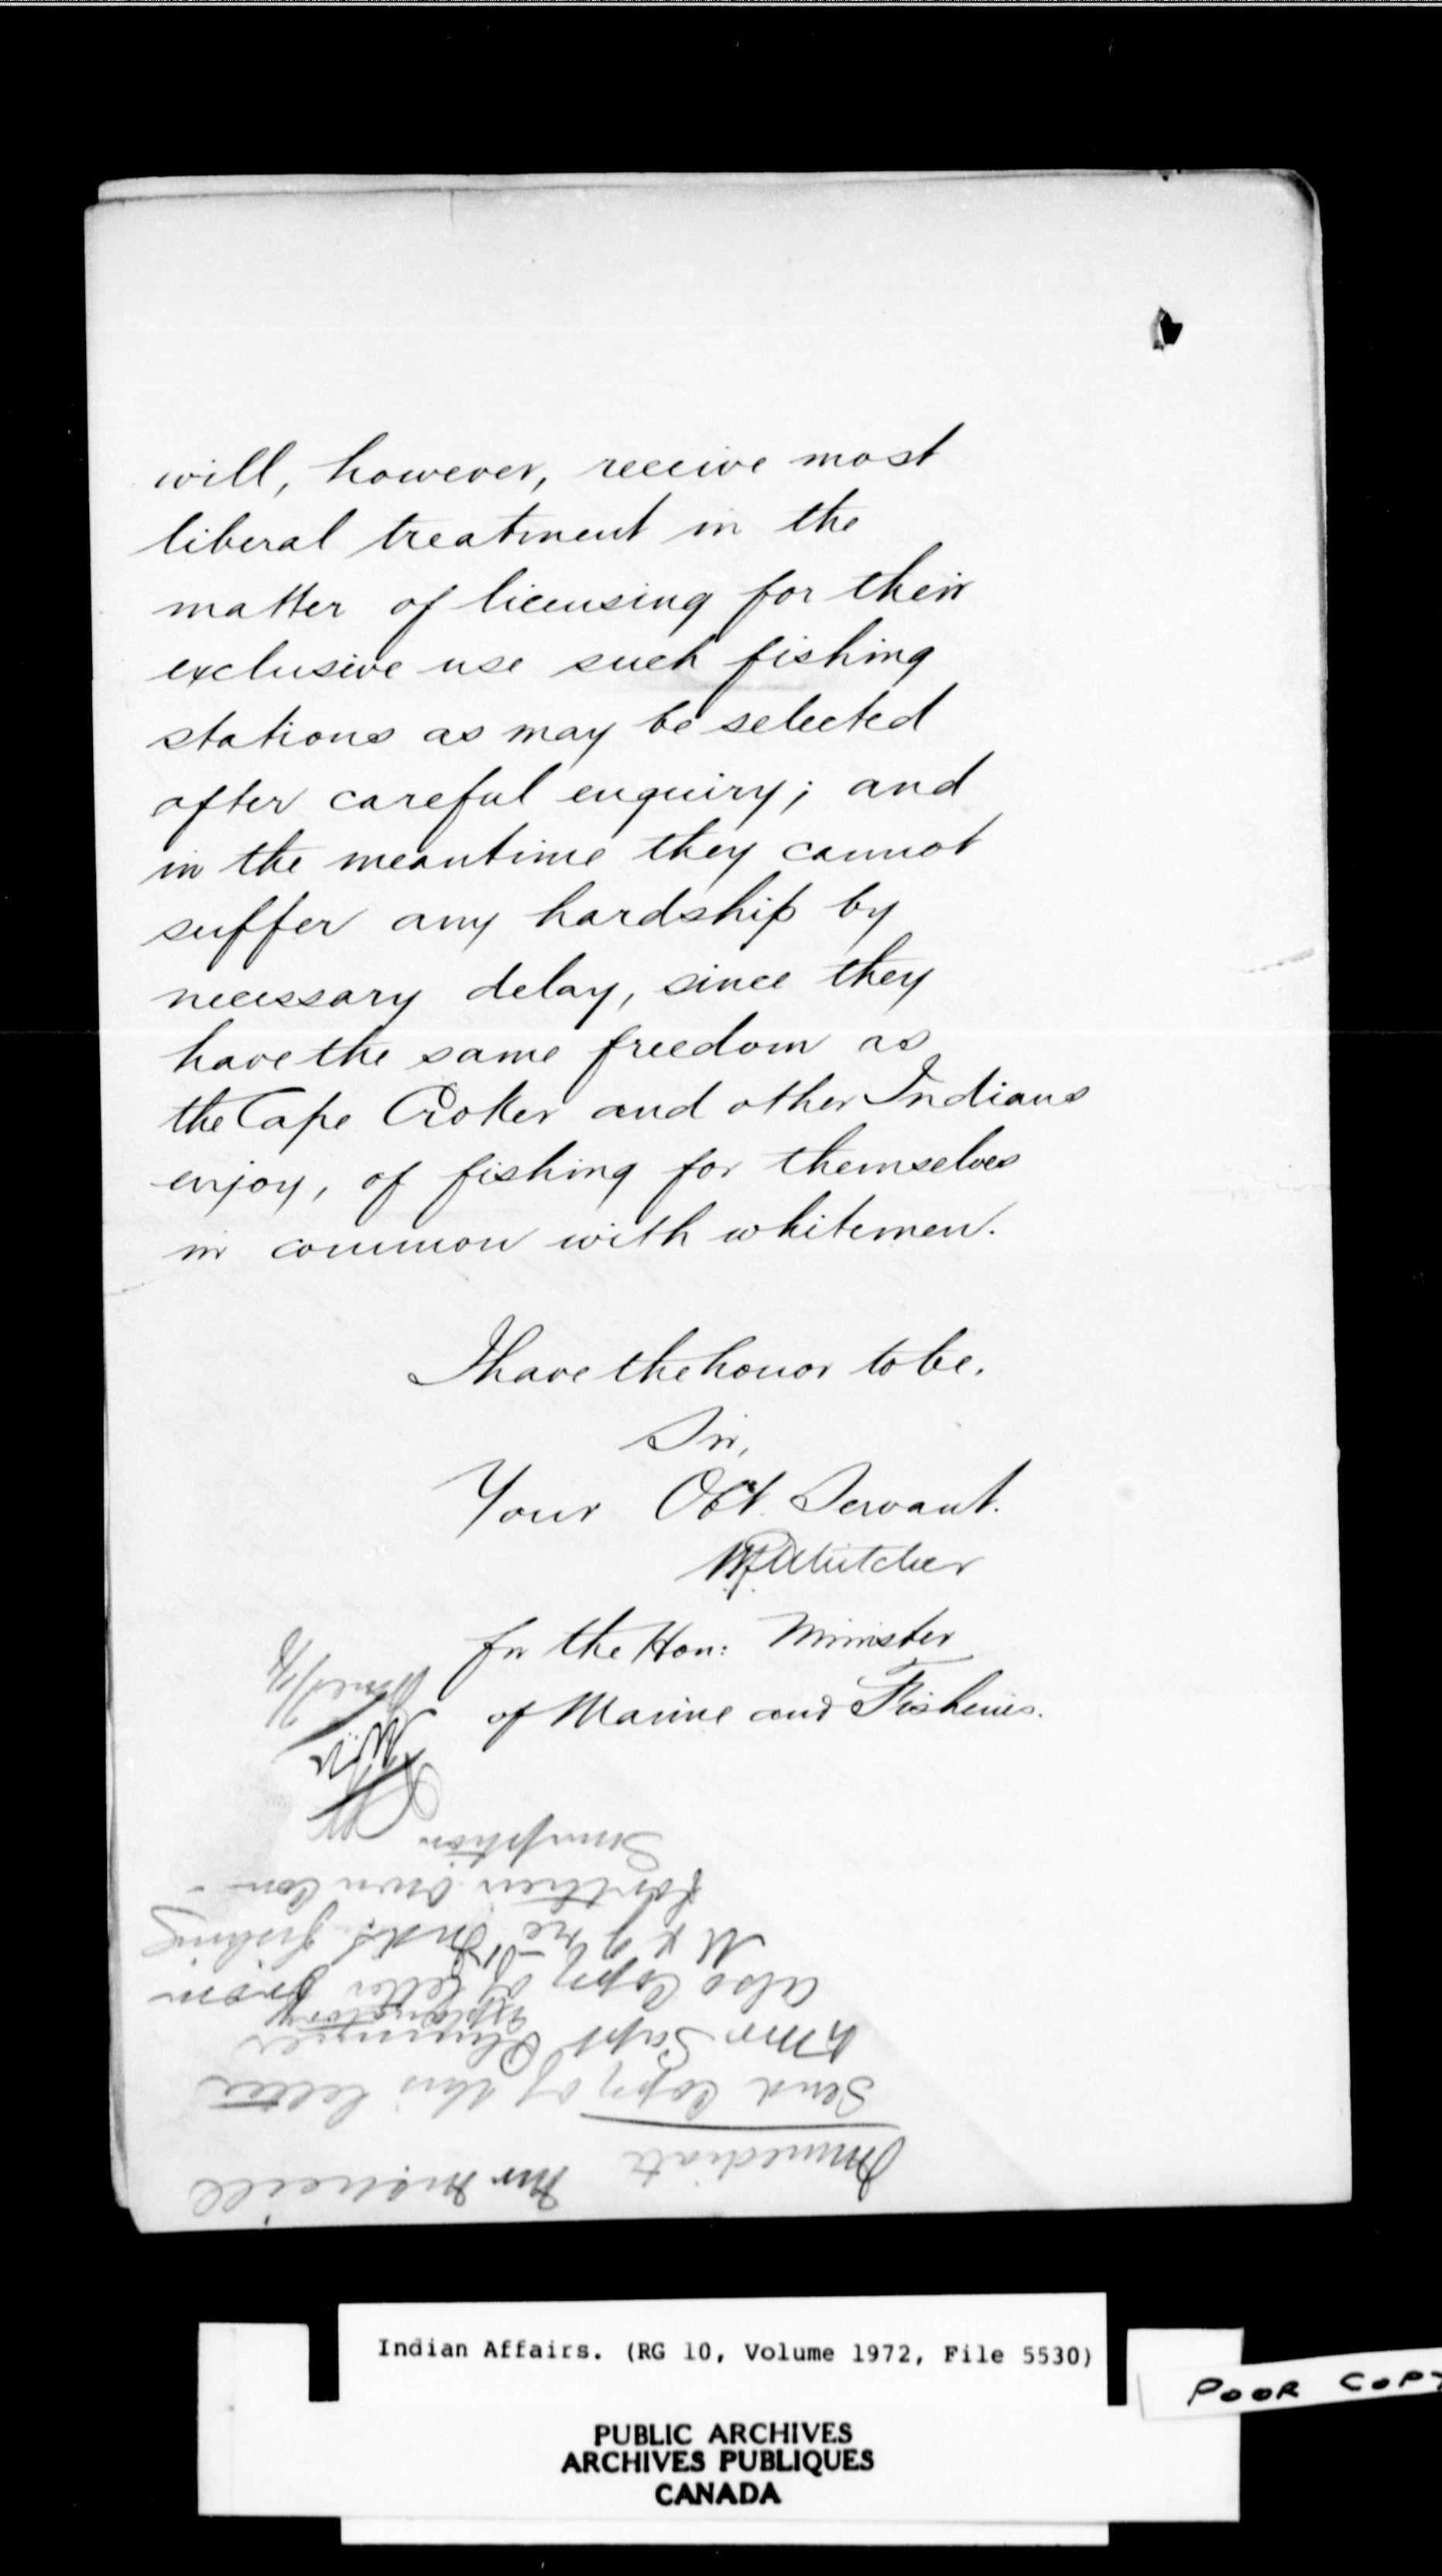 will, however, receive most
liberal treatment in the
matter of licensing for their
exclusive use such fishing
stations as may be selected
after careful enquiry; and
in the meantime they cannot
suffer any hardship by
necessary delay, since they
have the same freedom as
the Cape Croker and other Indians
enjoy, of fishing for themselves
in common with whitemen.
I have the honor to be.
Sir,
Your Obt. Servant.
W.F. Whitcher
for the Hon: Minister
of Marine and Fisheries.
Immediate Mr McNeill
Send Copy of this letter
to Mr Supt Plummer
explanatory
also Copy of letter from
M & F re Inds fishing
for their own Con-
sumption
Indian Affairs. (RG 10, Volume 1972, File 5530)
POOR COPY
PUBLIC ARCHIVES
ARCHIVES PUBLIQUES
CANADA